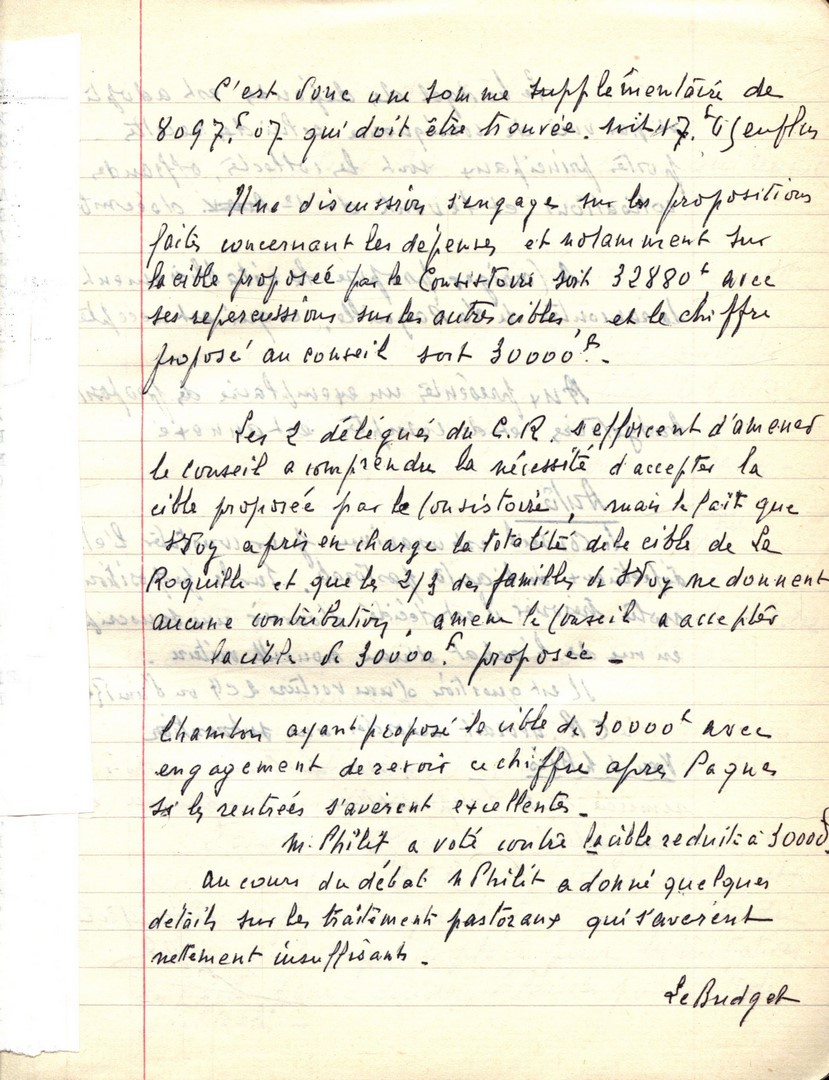 C'est donc une somme supplémentaire de
8097,F 07 qui doit être trouvée. soit 17. en plus
Une discussion s'engage sur les propositions
faites concernant les dépenses et notamment sur
la cible proposée par le Consistoire soit 32880F avec
ses repercussions sur les autres cibles et le chiffre
proposé au conseil soit 30000F.-
Les 2 délégués du C.R. s'efforcent d'amener
le conseil a comprendre la nécéssité d'accepter la
cible proposée par le Consistoire, mais le fait que
a pris en charge la totalité de la cible de La
Roquille et que les 2/3 des familles de ne donnent
aucune contribution, amène le Conseil a accepter
la cible de 30000F. proposée -
Chambon ayant proposé la cible de 30000F avec
engagement de revoir ce chiffre apres Paques
si les rentrées s'avèrent excellentes -
M. Philit a voté contre la cible reduite à 30000F.
au cours du débat M Philit a donné quelques
détails sur les traitements pastoraux qui s'averent
nettement insuffisants -
Le Budget